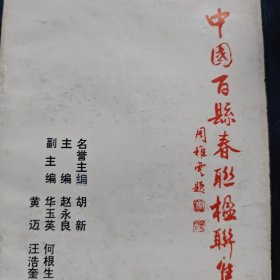 中國百縣春聯楹聯集
周稚雲題
名誉主编 胡新
主编 赵永良
副主编 华玉英 何根生
黄迈 汪浩奎